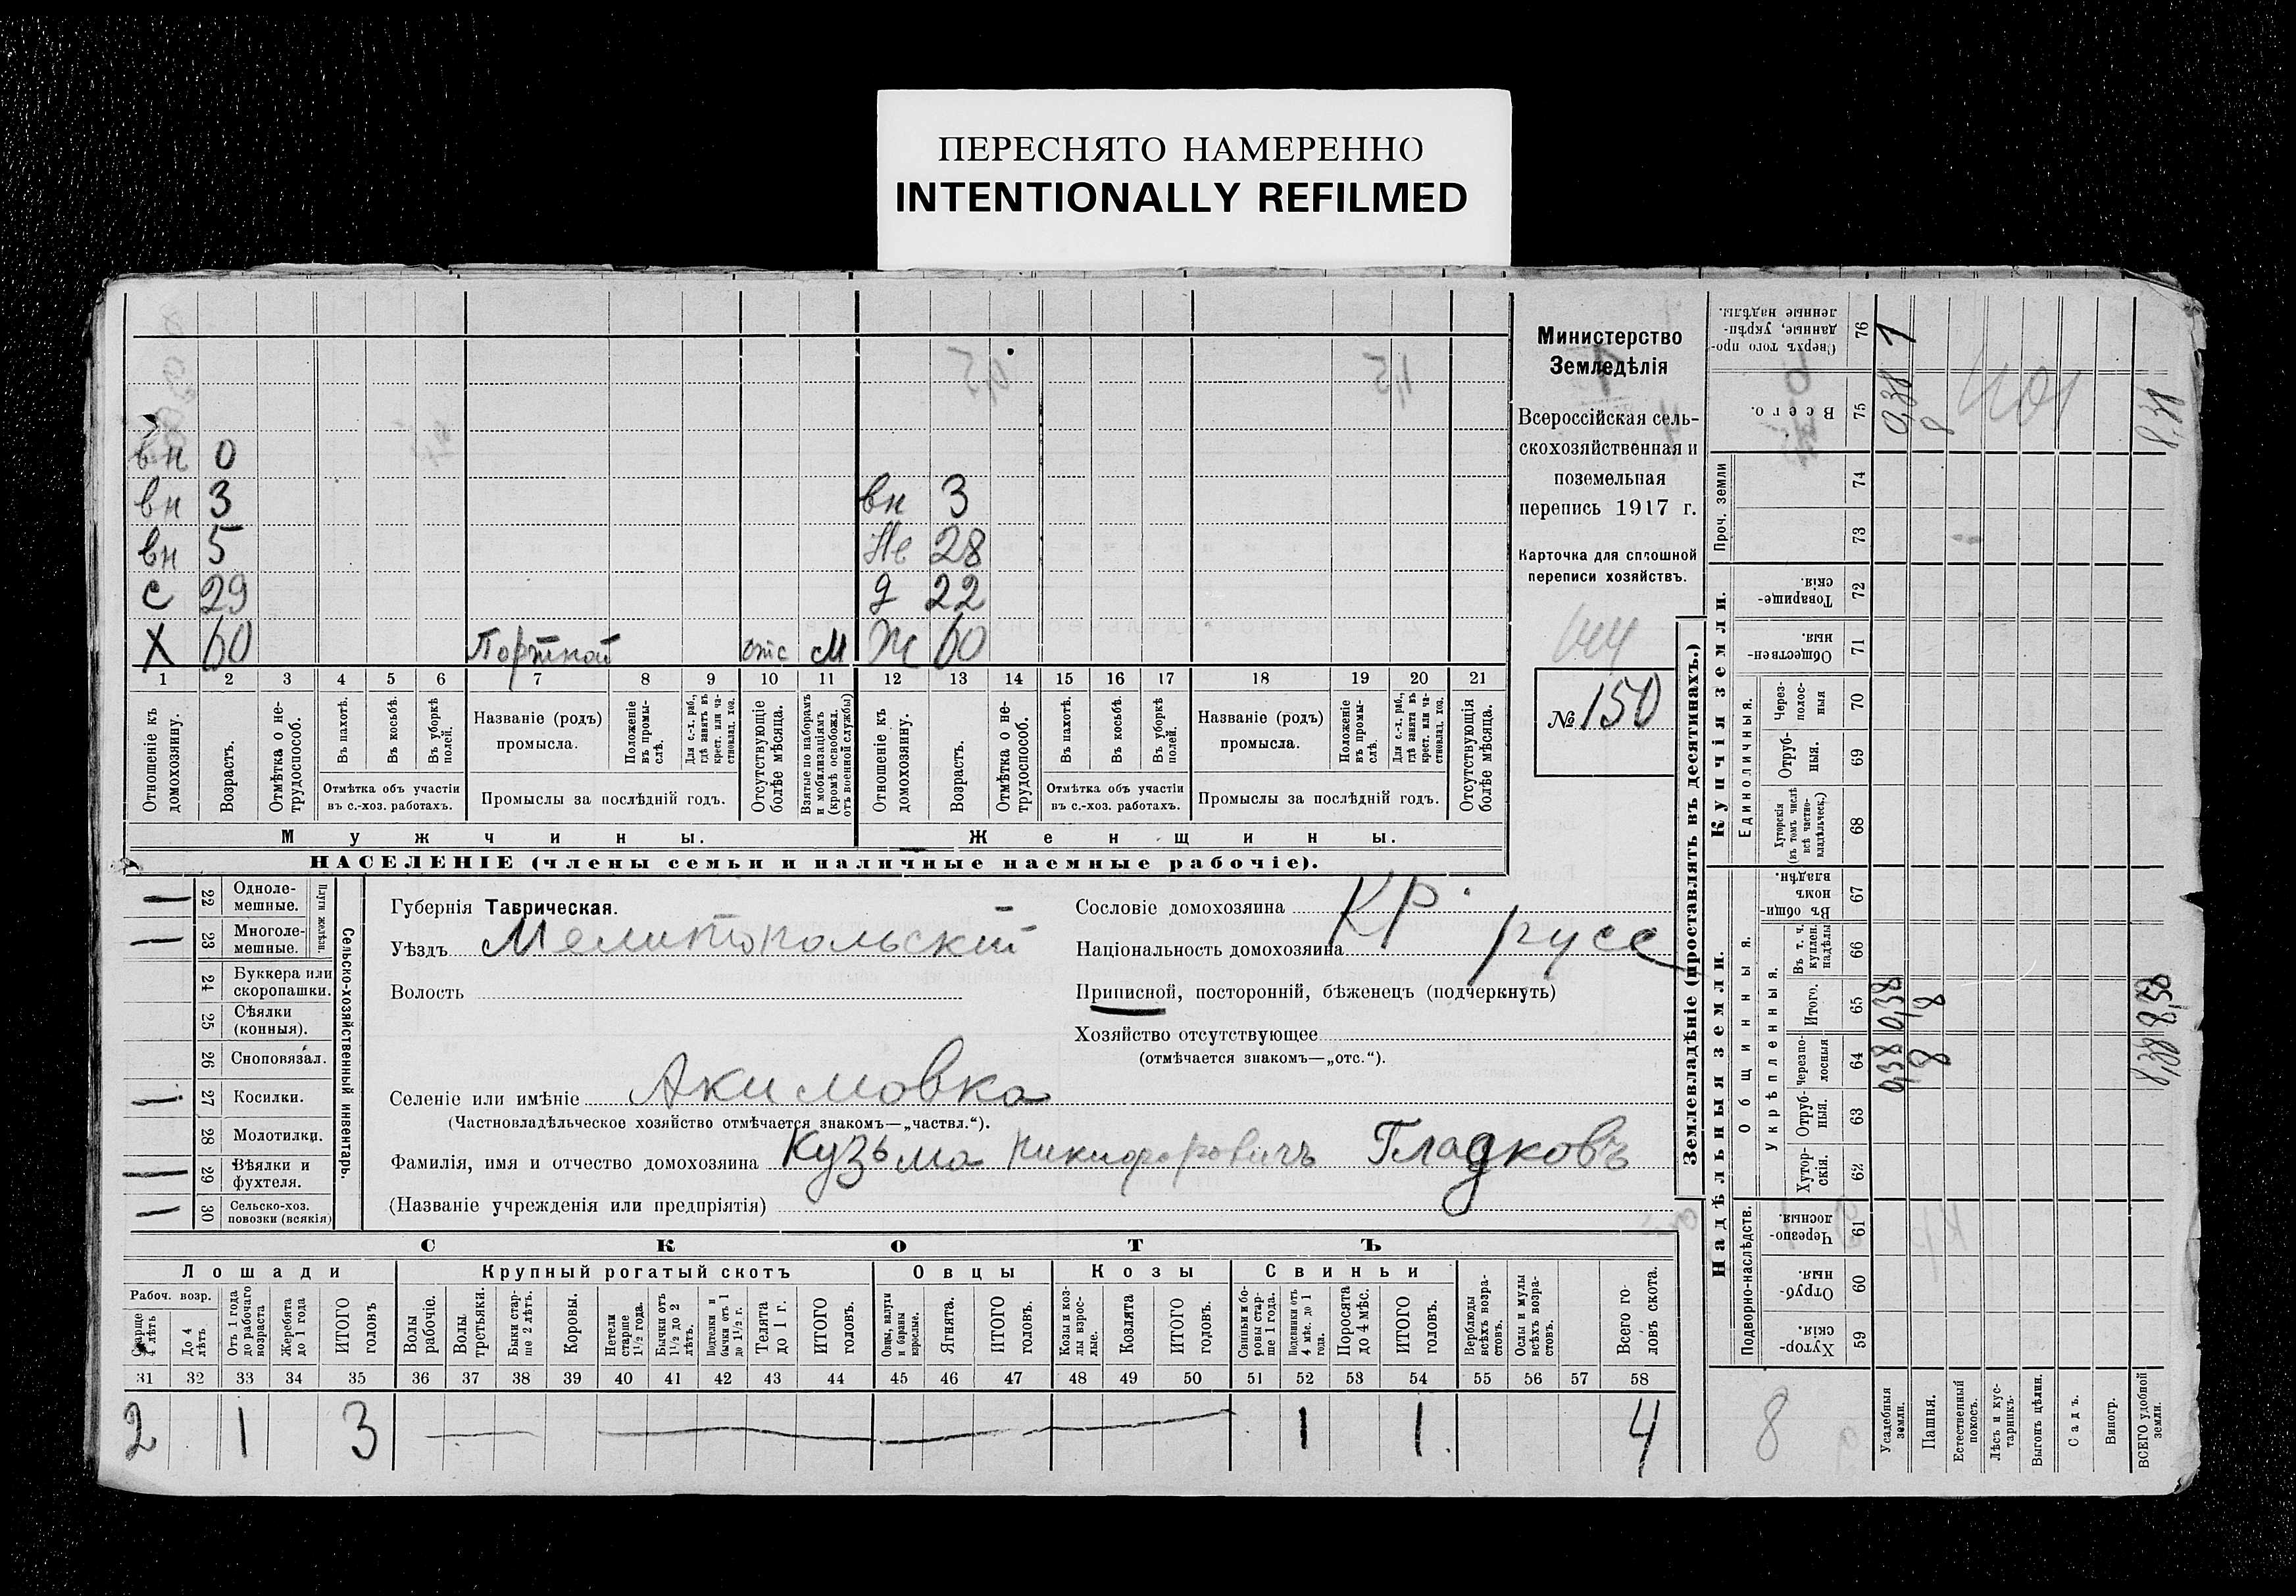 ПЕРЕСНЯТО НАМЕРЕННО
INTENTIONALLY REFILMED
вн 0
вн 3 вн 3
вн 5 Не 28
с 29 д 22
Х 60 Портной отс М Ж 60
1 2 3 4 5 6 7 8 9 10 11 12 13 14 15 16 17 18 19 20 21
Отношеніе къ домохозяину.
Возрастъ.
Отмѣтка о нетрудоспособ.
Въ пахотѣ.
Въ косьбѣ.
Въ уборкѣ полей.
Отмѣтка объ участіи
въ с.-хоз. работахъ.
Названіе (родъ)
промысла.
Положеніе въ промыслѣ.
Для с.-х. раб., гдѣ занятъ въ крест. или частновлад. хоз.
Промыслы за послѣдній годъ.
Отсутствующіе болѣе мѣсяца.
Взятые по наборамъ и мобилизаціямъ (кромѣ освобожд. отъ военной службы)
Отношеніе къ домохозяину.
Возрастъ.
Отмѣтка о нетрудоспособ.
Въ пахотѣ.
Въ косьбѣ.
Въ уборкѣ полей.
Отмѣтка объ участіи
въ с.-хоз. работахъ.
Названіе (родъ)
промысла.
Положеніе въ промыслѣ.
Для с.-х. раб., гдѣ занята въ крест. или частновлад. хоз.
Промыслы за послѣдній годъ.
Отсутствующія болѣе мѣсяца.
Мужчины. Женщины.
НАСЕЛЕНІЕ (члены семьи и наличные наемные рабочіе).
Министерство
Земледѣлія
Всероссійская сель-
скохозяйственная и
поземельная
перепись 1917 г.
Карточка для сплошной
переписи хозяйствъ.
144
№ 150
22 Однолемешные.
23 Многолемешные.
Плуги желѣзн.
24 Буккера или скоропашки.
25 Сѣялки (конныя).
26 Сноповязал.
27 Косилки.
28 Молотилки.
29 Вѣялки и фухтеля.
30 Сельско-хоз. повозки (всякія)
Сельско-хозяйственный инвентарь.
Губернія Таврическая.
Уѣздъ Мелитопольскій
Волость
Сословіе домохозяина Кр.
Національность домохозяина русс
Приписной, посторонній, бѣженецъ (подчеркнуть)
Хозяйство отсутствующее
(отмѣчается знакомъ—„отс.“).
Селеніе или имѣніе Акимовка
(Частновладѣльческое хозяйство отмѣчается знакомъ—„частвл.“).
Фамилія, имя и отчество домохозяина Кузьма Никифоровичъ Гладковъ
(Названіе учрежденія или предпріятія)
СКОТЪ
Лошади Крупный рогатый скотъ Овцы Козы Свиньи
Рабоч. возр.
Старше 4 лѣтъ
До 4 лѣтъ
Отъ 1 года до рабочаго возраста
Жеребята до 1 года
ИТОГО головъ
Волы рабочіе.
Волы третьяки.
Быки старше 2 лѣтъ.
Коровы.
Нетели старше 1½ года.
Бычки отъ 1½ до 2 лѣтъ.
Подтелки и бычки отъ 1 до 1½ г.
Телята до 1 г.
ИТОГО головъ.
Овцы, валухи и бараны взрослые.
Ягнята.
ИТОГО головъ.
Козы и козлы взрослые.
Козлята
ИТОГО головъ.
Свиньи и боровы старше 1 года.
Подсвинки отъ 4 мѣс. до 1 года.
Поросята до 4 мѣс.
ИТОГО головъ.
Верблюды всѣхъ возрастовъ.
Ослы и мулы всѣхъ возрастовъ.
Всего головъ скота.
31 32 33 34 35 36 37 38 39 40 41 42 43 44 45 46 47 48 49 50 51 52 53 54 55 56 57 58
2 1 3 1 1 4
Землевладѣніе (проставлять въ десятинахъ.)
Купчія земли.
Надѣльныя земли.
Сверхъ того проданные, укрѣпленные надѣлы. 76 1
Всего. 75 0,38 8 8,38
401
Проч. земли
74
73
Товарищескія. 72
Общественныя. 71
Единоличныя.
Черезполосныя 70
Отрубныя. 69
Хуторскія (въ томъ числѣ всѣ частновладѣльческ.) 68
Общинныя.
Въ общинномъ владѣн. 67
Укрѣпленныя.
Въ т. ч. куплен. надѣлы 66
Итого. 65 0,38 8 8,38
Черезполосныя 64 0,38 8 8,38
Отрубныя. 63
Хуторскія. 62
Подворно-наслѣдств.
Черезполосныя. 61
Отрубныя. 60
Хуторскія. 59
8
Усадебныя земли.
Пашня.
Естественный покосъ.
Лѣсъ и кустарникъ.
Выгонъ цѣлин.
Садъ.
Виногр.
ВСЕГО удобной земли.